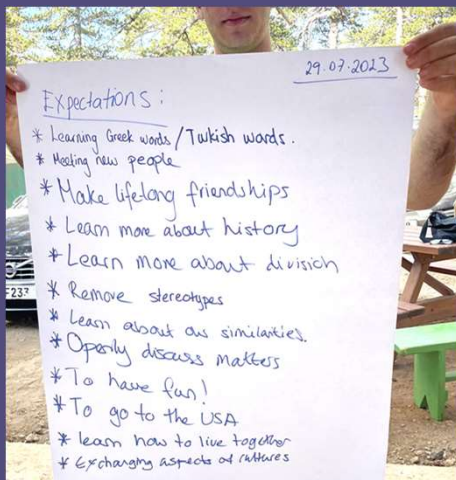 29.07.2023
Expectations:
* Learning Greek words/Turkish words.
* Meeting new people
* Make lifelong friendships
* Learn more about history
* Learn more about division
* Remove stereotypes
* Learn about our similarities.
* Openly discuss matters
* To have fun!
* To go to the USA
* learn how to live together
* Exchanging aspects of cultures
F 237